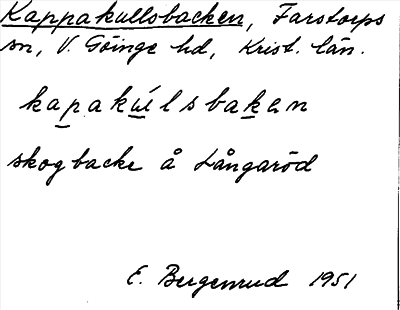 Kappakullsbacken, Farstorps
sn, V. Göinge hd, Krist. län.
kapakúlsbakęn
skogbacke å Långaröd
E. Bergenrud 1951